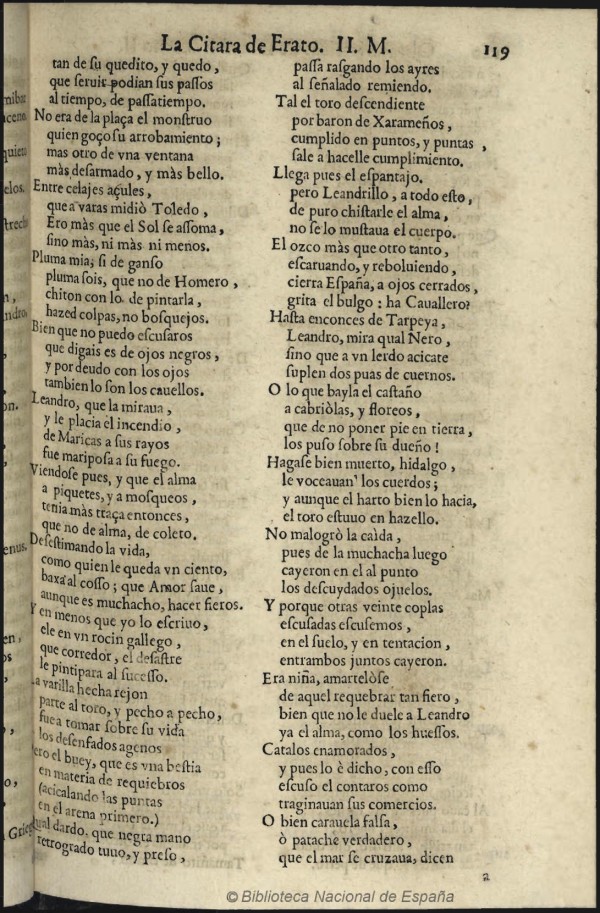 La Citara de Erato. II. M.
119
tan de su quedito, y quedo,
que seruir podian sus passos
al tiempo, de passatiempo.
No era de la plaça el monstruo
quien goço su arrobamiento;
mas otro de vna ventana
màs desarmado, y màs bello.
Entre celajes açules,
que a varas midiò Toledo,
Ero màs que el Sol se assoma,
sino màs, ni màs ni menos.
Pluma mia; si de ganso
pluma sois, que no de Homero,
chiton con lo de pintarla,
hazed colpas, no bosquejos.
Bien que no puedo escusaros
que digais es de ojos negros,
y por deudo con los ojos
tambien lo son los cauellos.
Leandro, que la miraua,
y le placia el incendio,
de Maricas a sus rayos
fue mariposa a su fuego.
Viendose pues, y que el alma
a piquetes, y a mosqueos,
tenia màs traça entonces,
que no de alma, de coleto.
Desestimando la vida,
como quien le queda vn ciento,
baxa al cosso; que Amor saue,
aunque es muchacho, hacer fieros.
Y en menos que yo lo escriuo,
ele en vn rocin gallego,
que corredor, el desastre
le pintipara al sucesso.
La varilla hecha rejon
parte al toro, y pecho a pecho,
fue a tomar sobre su vida
los desenfados agenos
ero el buey, que es vna bestia
en materia de requiebros
(acicalando las puntas
en el arena primero.)
ual dardo, que negra mano
retrogrado tuuo, y preso,
passa rasgando los ayres
al señalado remiendo.
Tal el toro descendiente
por baron de Xarameños,
cumplido en puntos, y puntas,
sale a hacelle cumplimiento.
Llega pues el espantajo.
pero Leandrillo, a todo esto,
de puro chistarle el alma,
no se lo mustaua el cuerpo.
El ozco màs que otro tanto,
escaruando, y reboluiendo,
cierra España, a ojos cerrados,
grita el bulgo: ha Cauallero?
Hasta enconces de Tarpeya,
Leandro, mira qual Nero,
sino que a vn lerdo acicate
suplen dos puas de cuernos.
O lo que bayla el castaño
a cabriòlas, y floreos,
que de no poner pie en tierra,
los puso sobre su dueño!
Hagase bien muerto, hidalgo,
le voceauan los cuerdos;
y aunque el harto bien lo hacia,
el toro estuuo en hazello.
No malogrò la caìda,
pues de la muchacha luego
cayeron en el al punto
los descuydados ojuelos.
Y porque otras veinte coplas
escusadas escusemos,
en el suelo, y en tentacion,
entrambos juntos cayeron.
Era niña, amartelòse
de aquel requebrar tan fiero,
bien que no le duele a Leandro
ya el alma, como los huessos.
Catalos enamorados,
y pues lo è dicho, con esso
escuso el contaros como
traginauan sus comercios.
O bien carauela falsa,
ò patache verdadero,
que el mar se cruzaua, dicen
a
© Biblioteca Nacional de España